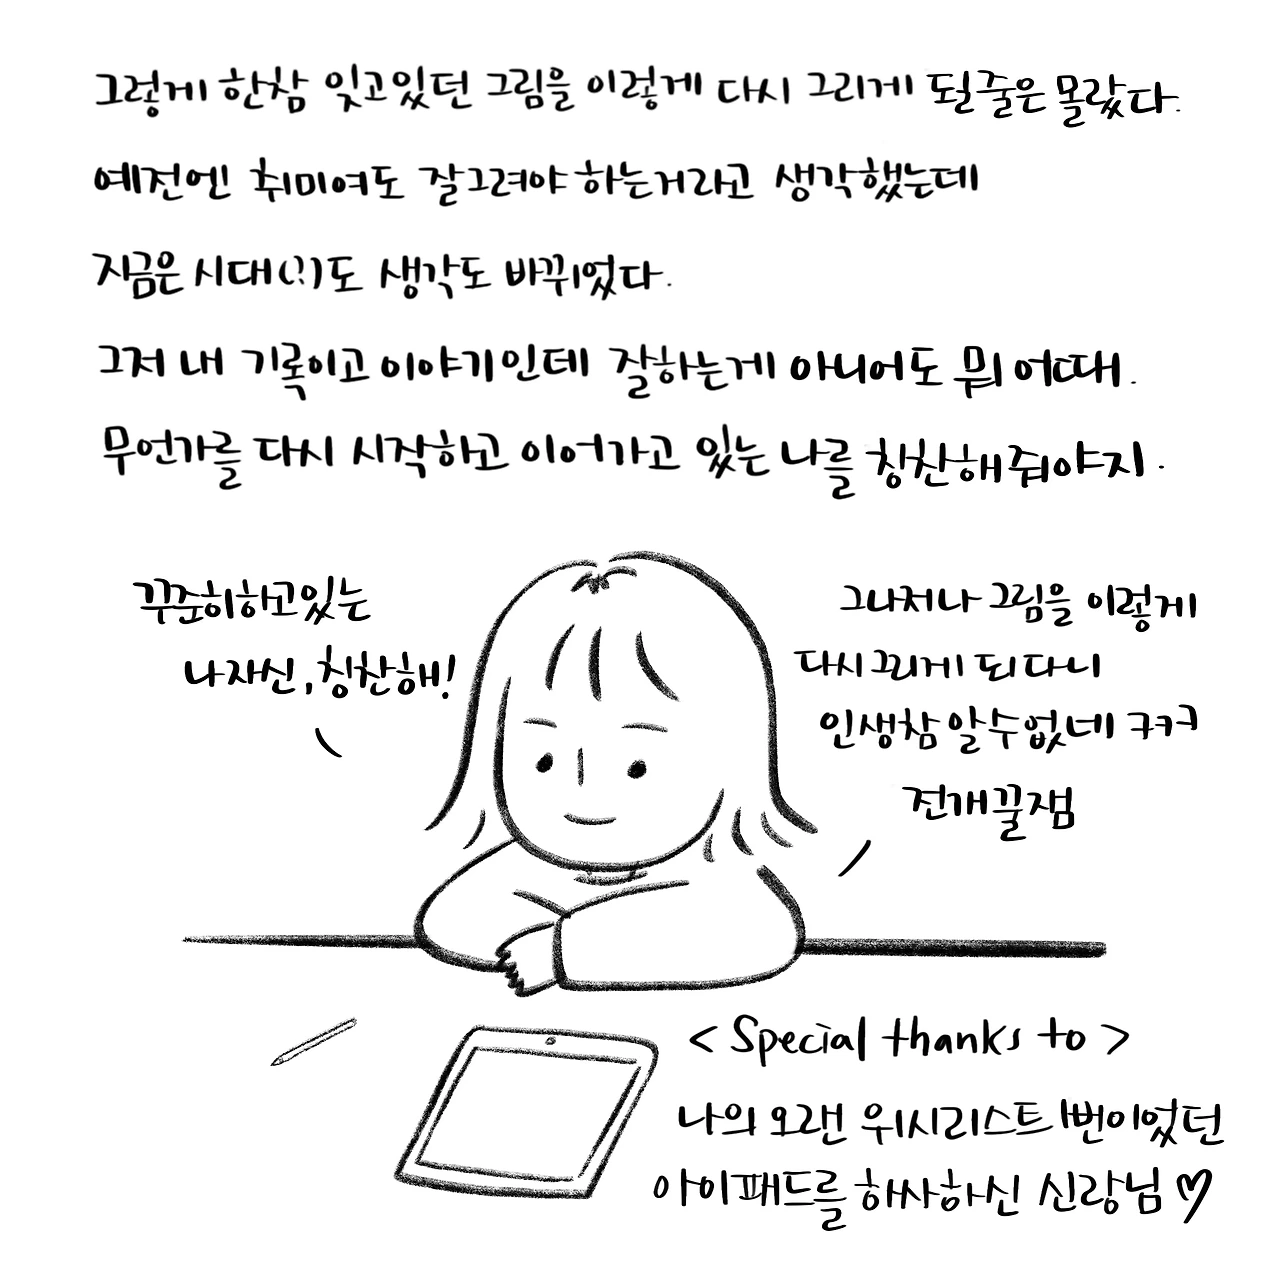 그렇게 한참 잊고있던 그림을 이렇게 다시 그리게 될줄은 몰랐다.
예전엔 취미여도 잘그려야 하는거라고 생각했는데
지금은 시대(?)도 생각도 바뀌었다.
그저 내 기록이고 이야기인데 잘하는게 아니어도 뭐 어때.
무언가를 다시 시작하고 이어가고 있는 나를 칭찬해줘야지.
꾸준히하고있는
나자신, 칭찬해!
그나저나 그림을 이렇게
다시그리게 되다니
인생참 알수없네 ㅋㅋㅋ
전개꿀잼
< Special thanks to >
나의 오랜 위시리스트 1번이었던
아이패드를 하사하신 신랑님♡